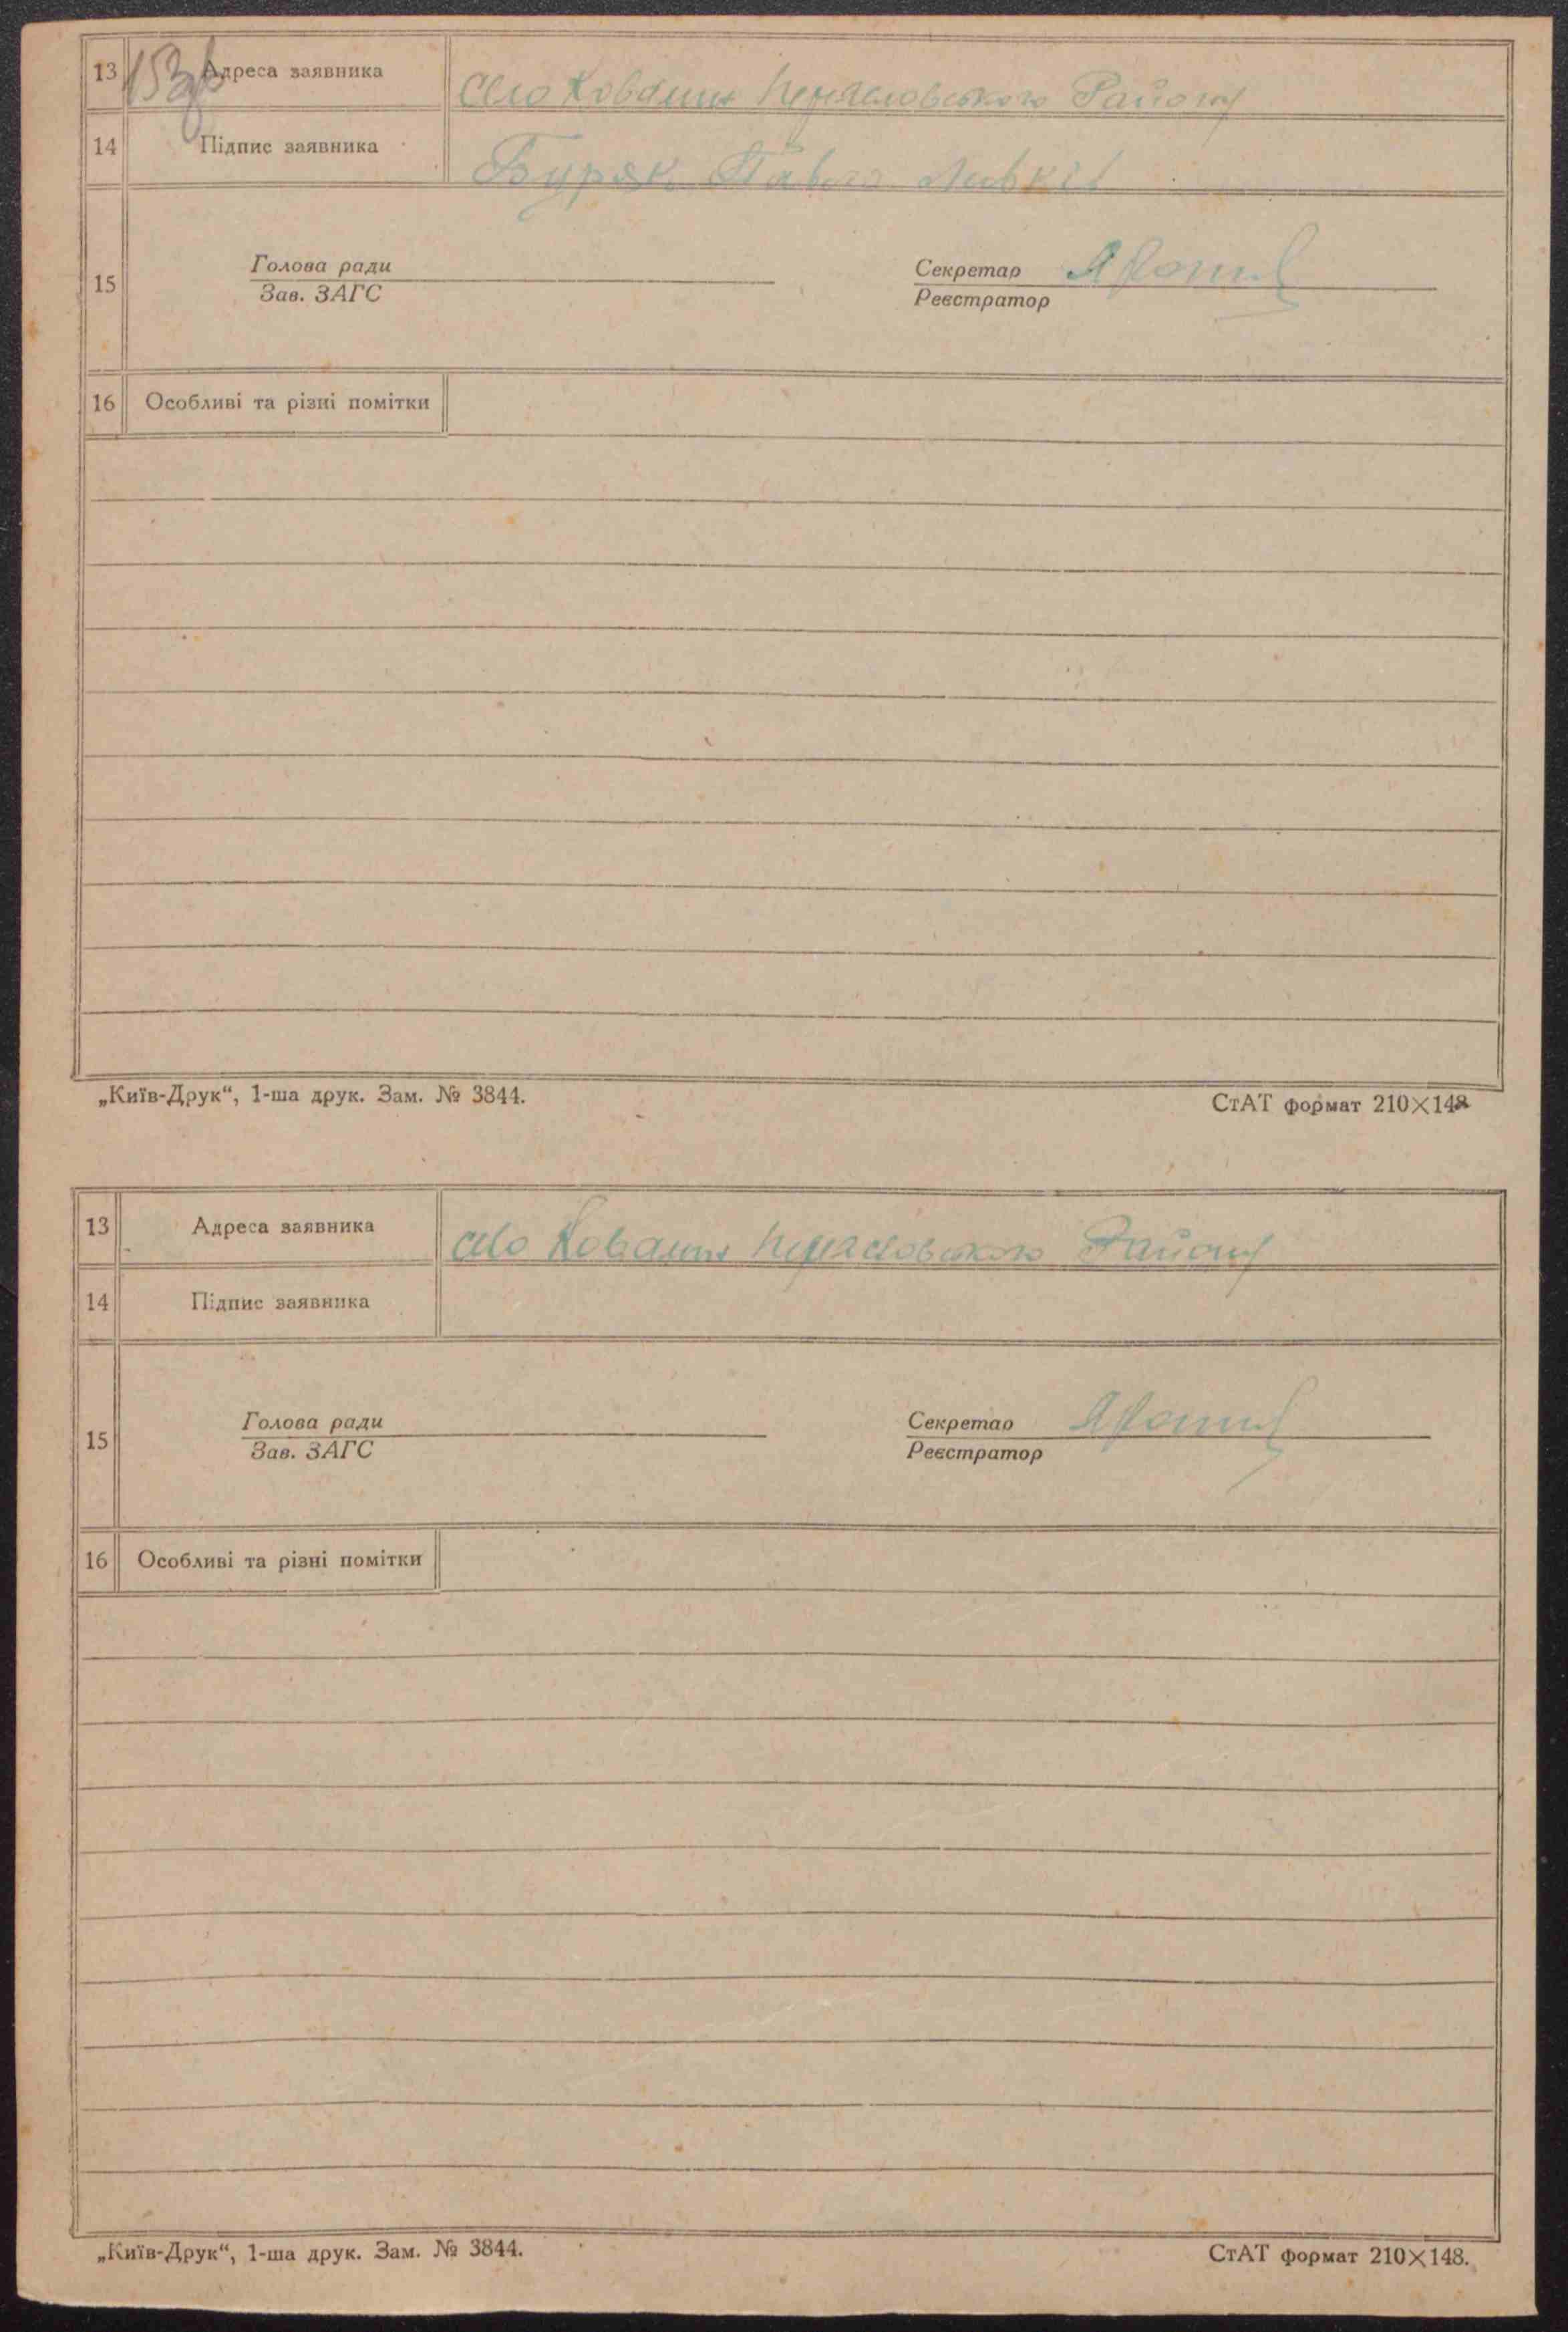 153
13 Адреса заявника Село Ковалин Переяславського Району
14 Підпис заявника Буряк Павло
15 Голова ради Секретар
Зав. ЗАГС Реєстратор
16 Особливі та різні помітки
„Київ-Друк“, 1-ша друк. Зам. № 3844. СтАТ формат 210×148
13 Адреса заявника село Ковалин Переяславського Району
14 Підпис заявника
15 Голова ради Секретар
Зав. ЗАГС Реєстратор
16 Особливі та різні помітки
„Київ-Друк“, 1-ша друк. Зам. № 3844. СтАТ формат 210×148.